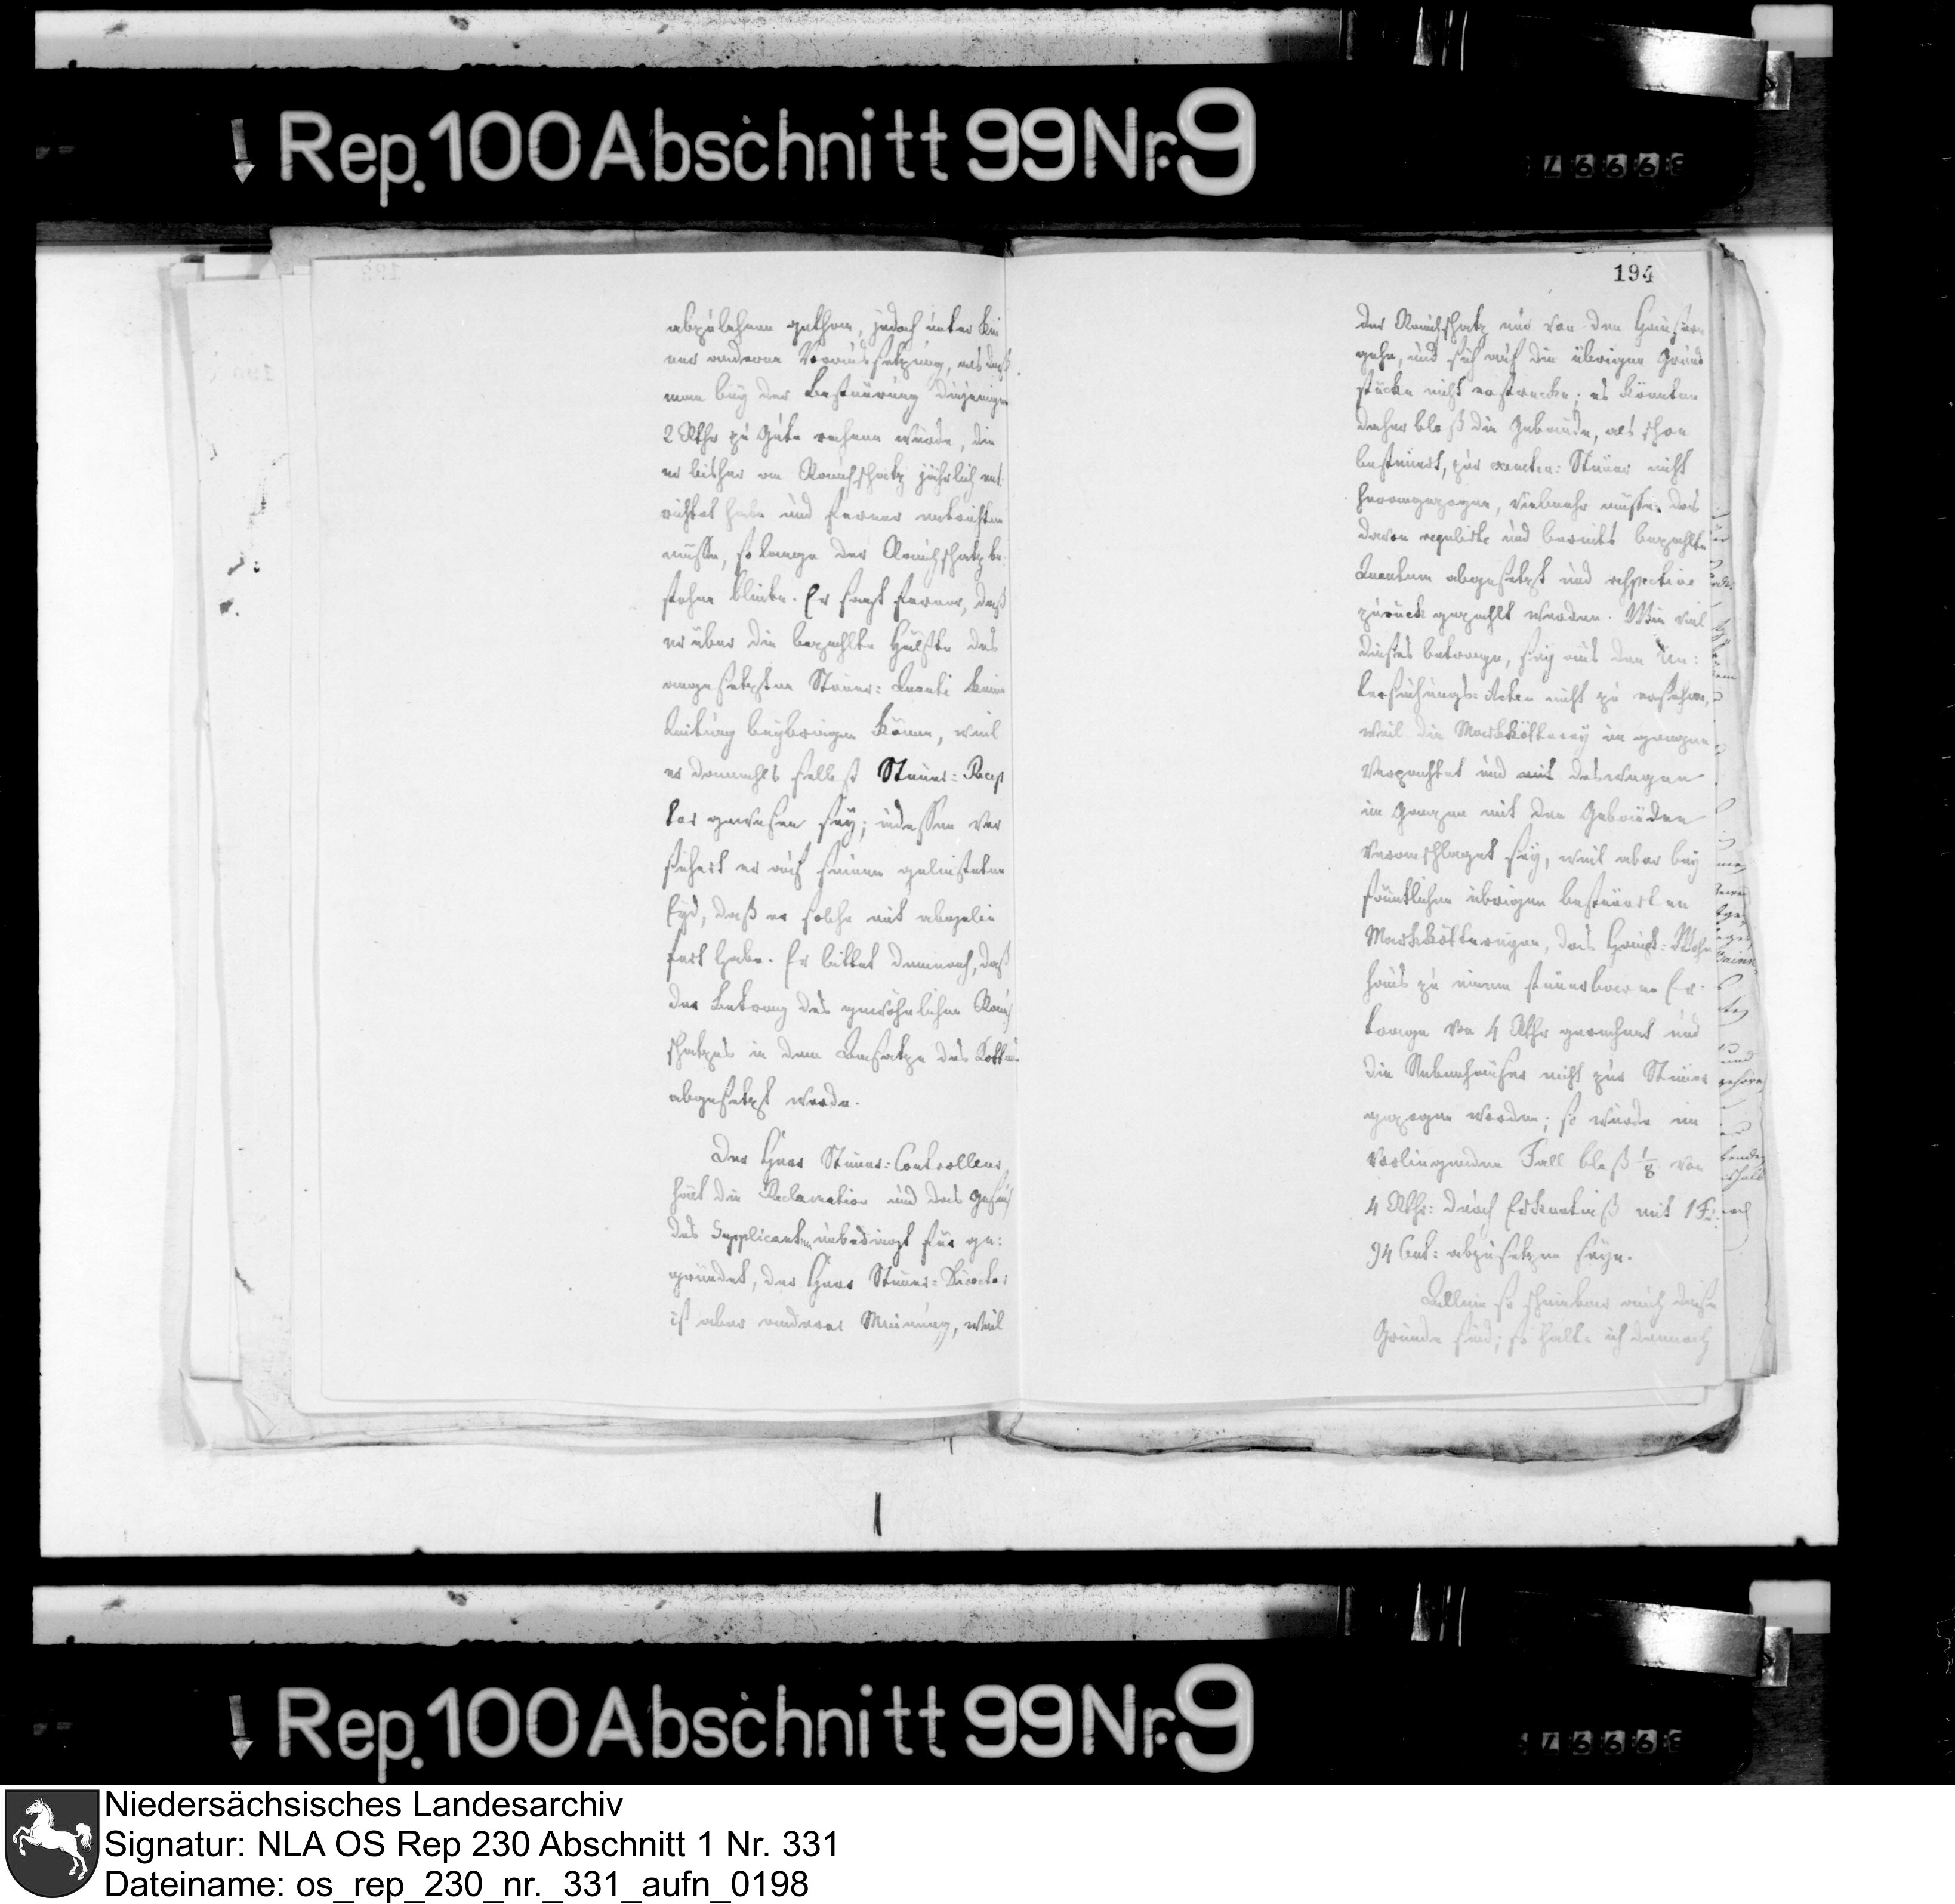 Rep. 100 Abschnitt 99 Nr. 9
abzulehnen gethan, jedoch unter kei
ner anderen Voraussetzung, als daß
man bey der Besteürung diejenigen
2 Rthr zu Gute rechnen würde, die
er bisher an Rauchschatz jährlich ent-
richtet habe und ferner entrichten
müsse, so lange der Rauchschatz be-
stehen bliebe. Er sagt ferner, daß
er über die bezahlte Hälfte des
angesetzten Steuer: Quanti keine
Quitung beybringen könne, weil
er damahls selbst Steuer: Recep
tor gewesen sey; indessen ver
sichert er auf seinen geleisteten
Eyd, daß er solche mit abgelie
fert habe. Er bittet demnach, daß
der Betrag des gewöhnlichen Rauch
schatzes in dem Ansatze des Kottens
abgesetzt werde.
Der Herr Steuer: Controlleur
hält die Reclamation und das Gesuch
des Supplicanten unbedingt für ge:
gründet, der Herr Steuer: Director
ist aber anderer Meinung, weil
194
der Rauchschatz nur von den Häusern
gehe, und sich auf die übrigen Grund
stücke nicht erstrecke; es könnten
daher bloß die Gebäude, als schon
besteuert, zur Steuer nicht
herangezogen, vielmehr müsse das
davon regulirte und bereits bezahlte
Quantum abgesetzt und respective
zurück gezahlt werden. Wie viel
dieses betrage, sey aus den Un:
tersuchungs: Acten nicht zu ersehen,
weil die Markkötterey im ganzen
verpachtet und mit deswegen
im Ganzen mit den Gebäuden
veranschlaget sey, weil aber bey
sämtlichen übrigen besteuerten
Markköttereyen, das Haupt: Wohn
haus zu einem steuerbaren Er:
trage von 4 Rthr gerechnet und
die Nebenhäuser nicht zur Steuer
gezogen worden; so würde im
vorliegenden Fall bloß 1/8 von
4 Rthr: durch Erkenntniß mit 1 Fr:
94 Cent: abzusetzen seyn.
Allein so scheinbar auch diese
Gründe sind; so halte ich dennoch
Rep. 100 Abschnitt 99 Nr. 9
Niedersächsisches Landesarchiv
Signatur: NLA OS Rep 230 Abschnitt 1 Nr. 331
Dateiname: os_rep_230_nr._331_aufn_0198